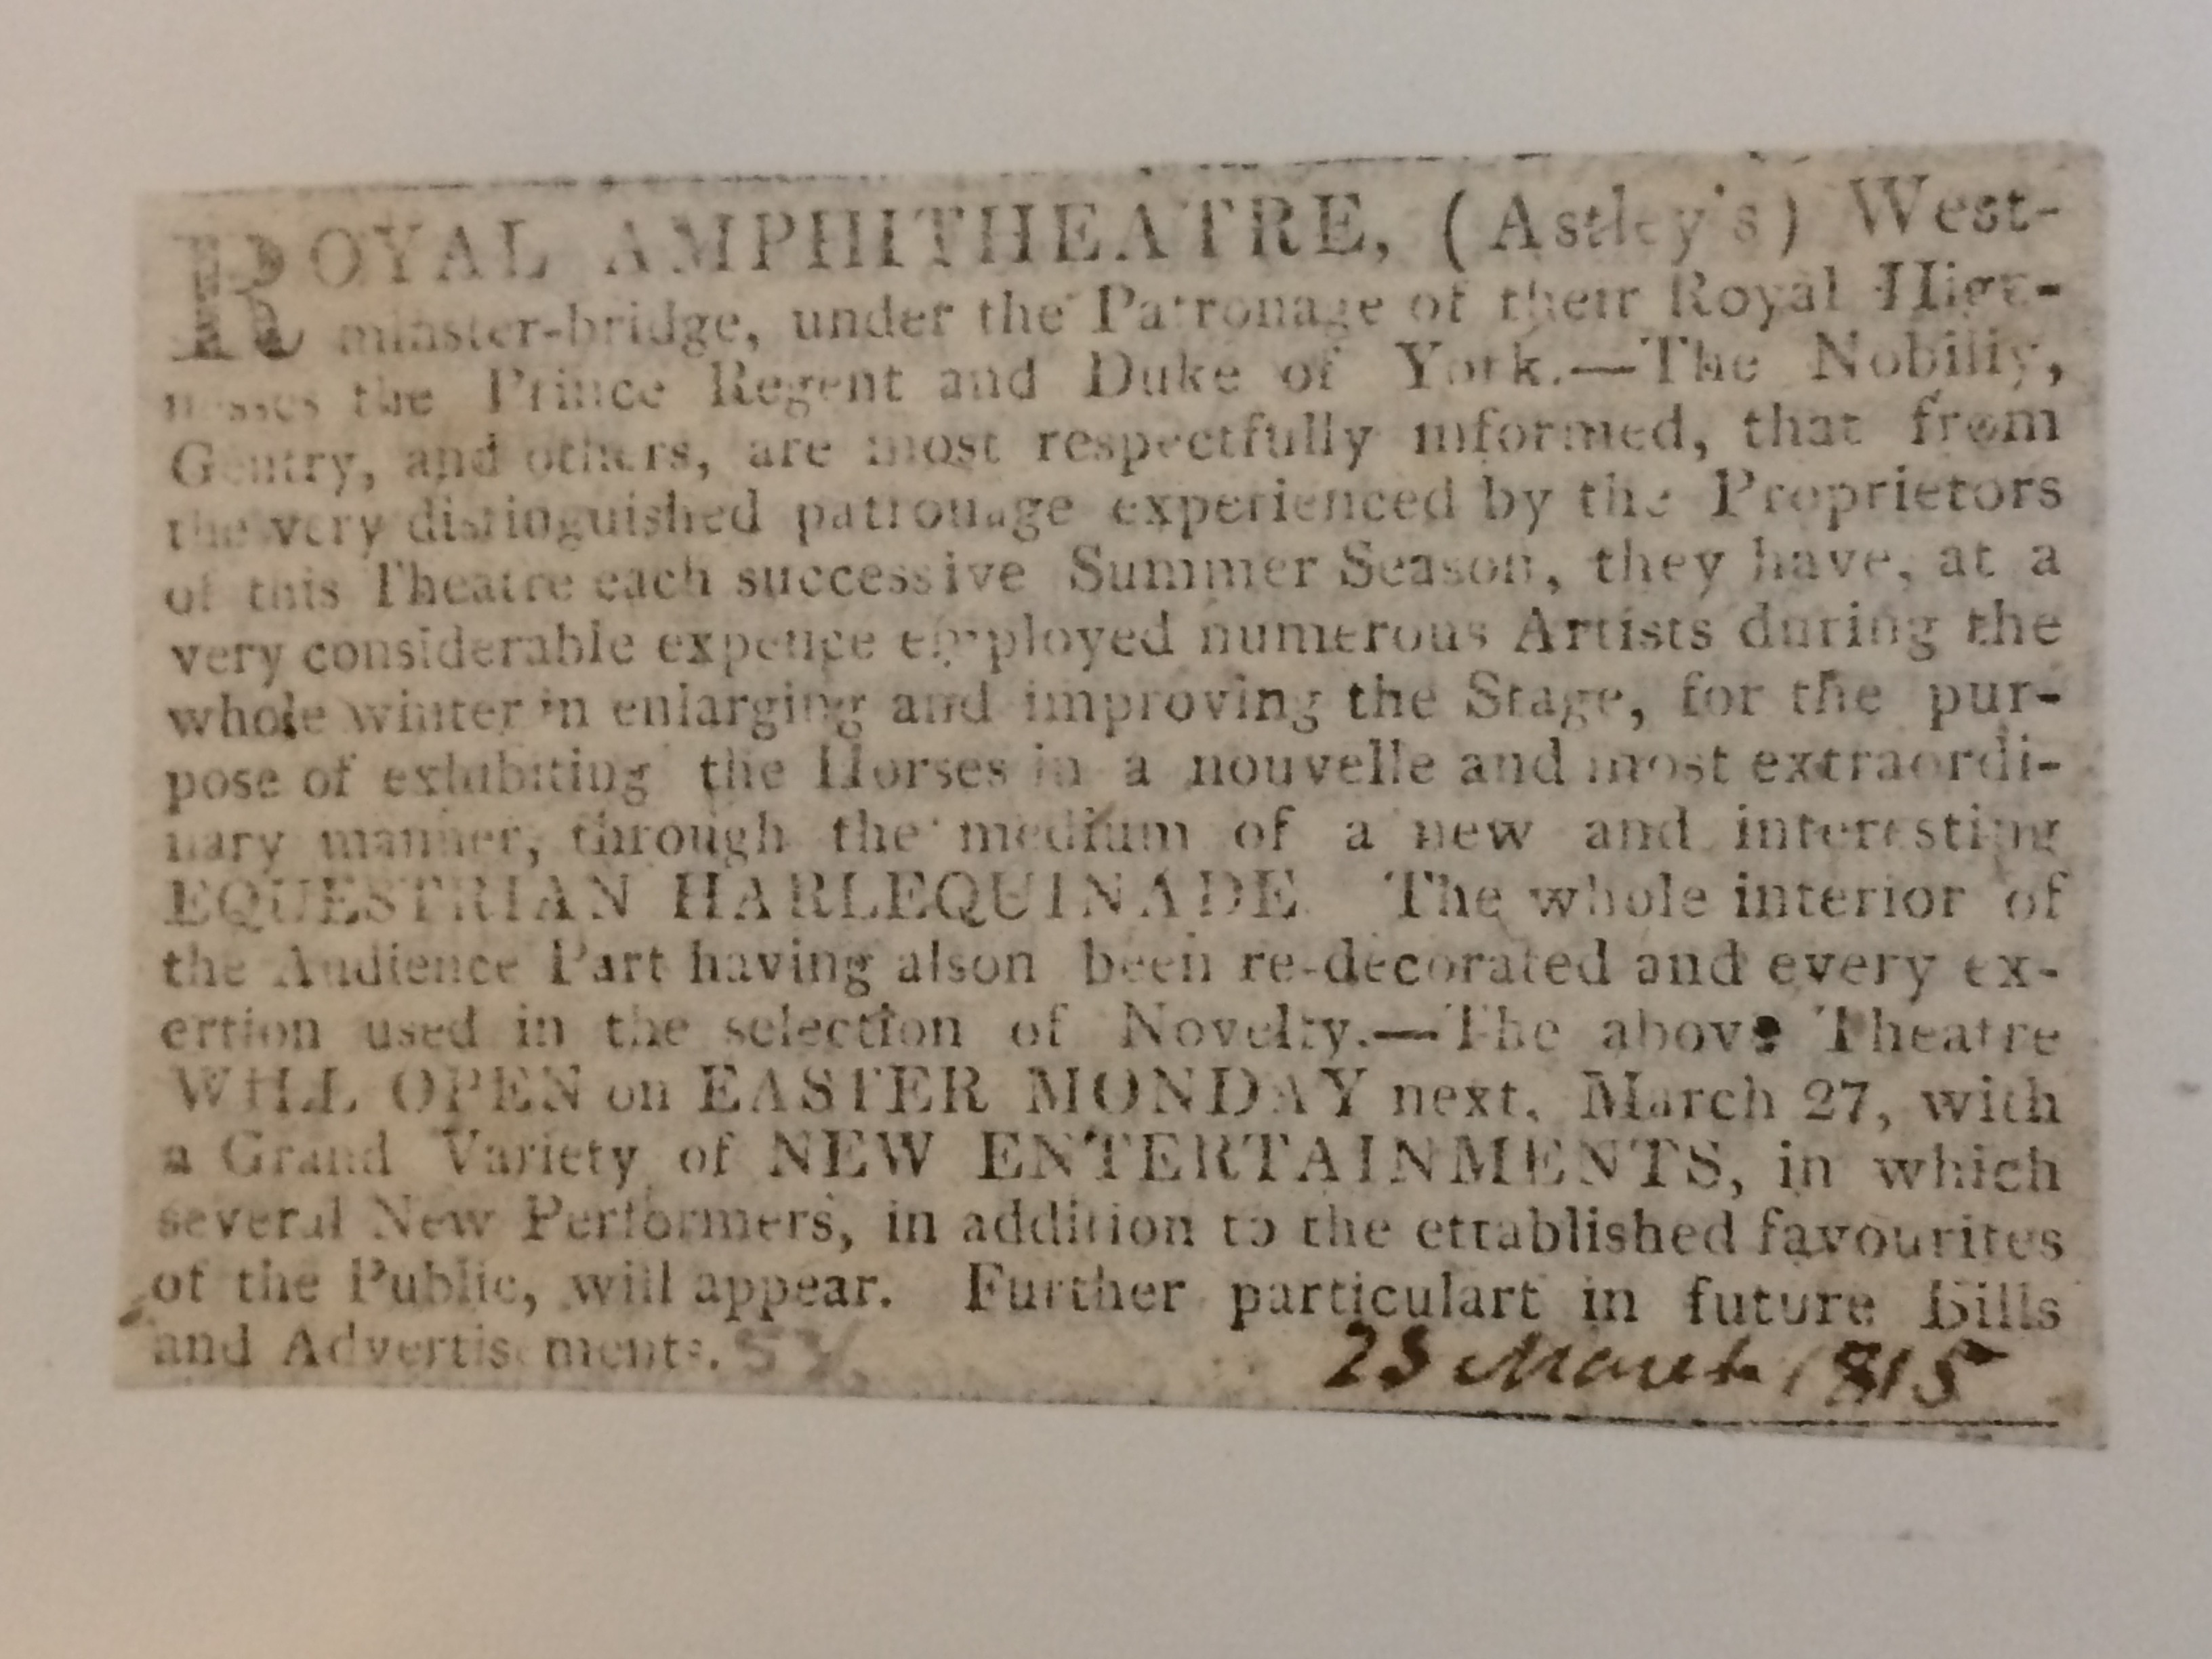 ROYAL AMPHITHEATRE, (Astley's) West-
minster-bridge, under the Patronage of their Royal High-
nesses the Prince Regent and Duke of York.—The Nobiliy,
Gentry, and others, are most respectfully informed, that from
the very distinguished patronage experienced by the Proprietors
of this Theatre each successive Summer Season, they have, at a
very considerable expence employed numerous Artists during the
whole winter in enlarging and improving the Stage, for the pur-
pose of exhibiting the Horses in a nouvelle and most extraordi-
nary manner, through the medium of a new and interesting
EQUESTRIAN HARLEQUINADE. The whole interior of
the Audience Part having alson been re-decorated and every ex-
ertion used in the selection of Novelty.—The above Theatre
WILL OPEN on EASTER MONDAY next, March 27, with
a Grand Variety of NEW ENTERTAINMENTS, in which
several New Performers, in addition to the ettablished favourites
of the Public, will appear. Further particulart in future Bills
and Advertisements.
23 March 1815